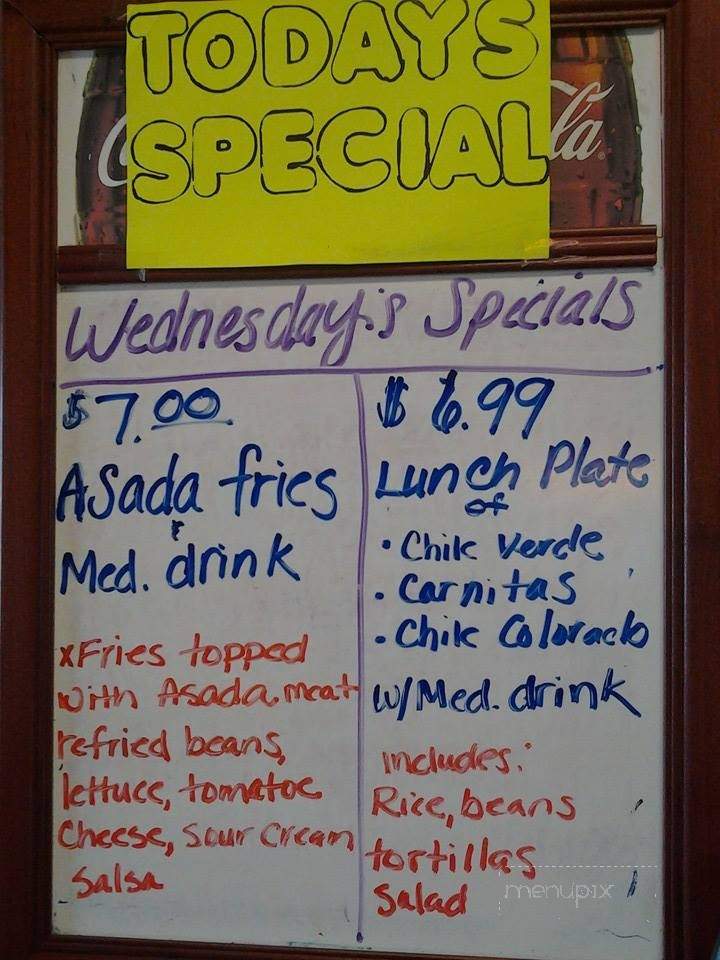 TODAYS
SPECIAL
la
Wednesday's Specials
$7.00
Asada fries
&
Med. drink
xFries topped
with Asada meat
refried beans,
lettuce, tomatoe
Cheese, sour cream
Salsa
$6.99
Lunch Plate
of
• Chile Verde
• Carnitas
• Chile Colorado
w/Med. drink
includes:
Rice, beans
tortillas
Salad
menupix